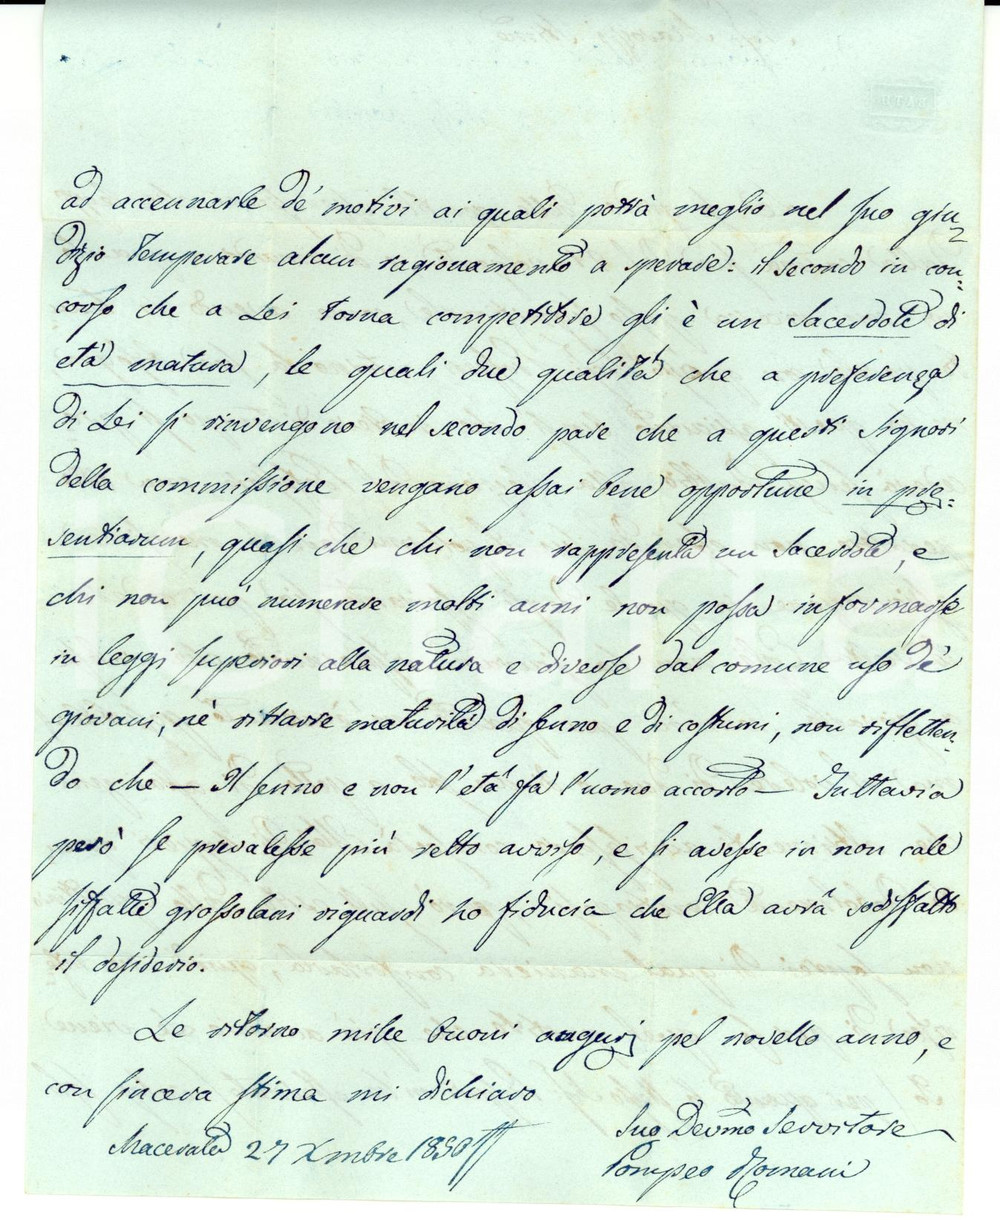 ad accennarle de' motivi ai quali potrà meglio nel suo giu=
dizio temperare alcun ragionamento a sperare: il secondo in con=
corso che a Lei torna competitore gli è un Sacerdote di
età matura, le quali due qualità che a preferenza
di Lei si rinvengono nel secondo pare che a questi Signori
della commissione vengano assai bene opportune in pre=
sentiarum, quasi che chi non rappresenta un Sacerdote, e
chi non può numerare molti anni non possa informarsi
in leggi superiori alla natura e diverse dal comune uso de'
giovani, nè ritrarre maturità di senno e di costumi, non rifletten=
do che — Il senno e non l'età fa l'uomo accorto — Tuttavia
però se prevalesse più retto avviso, e si avesse in non cale
siffatti grossolani riguardi ho fiducia che Ella avrà sodisfatto
il desiderio.
Le ritorno mille buoni augurj pel novello anno, e
con sincera stima mi dichiaro
Macerata 27 Xmbre 1850
Suo Devmo Servitore
Pompeo Romani